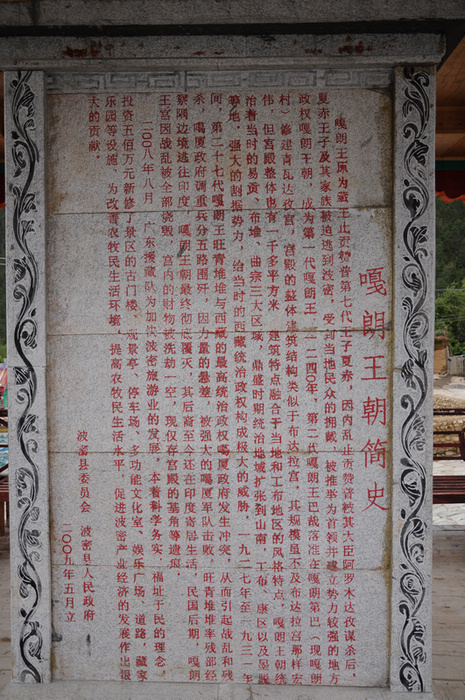 嘎朗王朝简史
嘎朗王原为藏王止贡赞普第七代王子夏赤，因内乱止贡赞普被其大臣阿罗木达孜谋杀后，
夏赤王子及其家族被迫逃到波密，受到当地民众的拥戴，被推举为首领并建立势力较强的地方
政权嘎朗王朝，成为第一代嘎朗王。一二四〇年，第二代嘎朗王巴裁落准在嘎朗第巴（现嘎朗
村）修建青瓦达孜宫，宫殿的整体建筑结构类似于布达拉宫，其规模虽不及布达拉宫那样宏
伟，但宫殿整体也有一千多平方米，建筑特点融合于当地和工布地区的风格特点，嘎朗王朝统
治着当时的易贡、布堆、曲宗三大区域，鼎盛时期统治地域扩张到山南、工布、康区以及墨脱
等地，强大的割据势力，给当时的西藏统治政权构成极大的威胁，一九二七年至一九三一年
间，第二十七代嘎朗王旺青堆堆与西藏的最高统治政权噶厦政府发生冲突，从而引起战乱和残
杀，噶厦政府调重兵分五路围歼，因力量的悬差，被强大的噶厦军队击败，旺青堆堆率残部经
察隅边境逃往印度，嘎朗王朝最终彻底覆灭，其后裔至今还在印度寄居生活，民国后期，嘎朗
王宫因战乱被全部烧毁，宫内的财物被洗劫一空，现仅存宫殿的基角等遗痕。
二〇〇八年八月，广东援藏队为加快波密旅游业的发展，本着科学务实、福址于民的理念
投资五佰万元新修了景区的古门楼、观景亭、停车场、多功能文化室、娱乐广场、道路、藏家
乐园等设施，为改善农牧民生活环境，提高农牧民生活水平，促进波密产业经济的发展作出很
大的贡献。
波密县委员会 波密县人民政府
二〇〇九年五月立